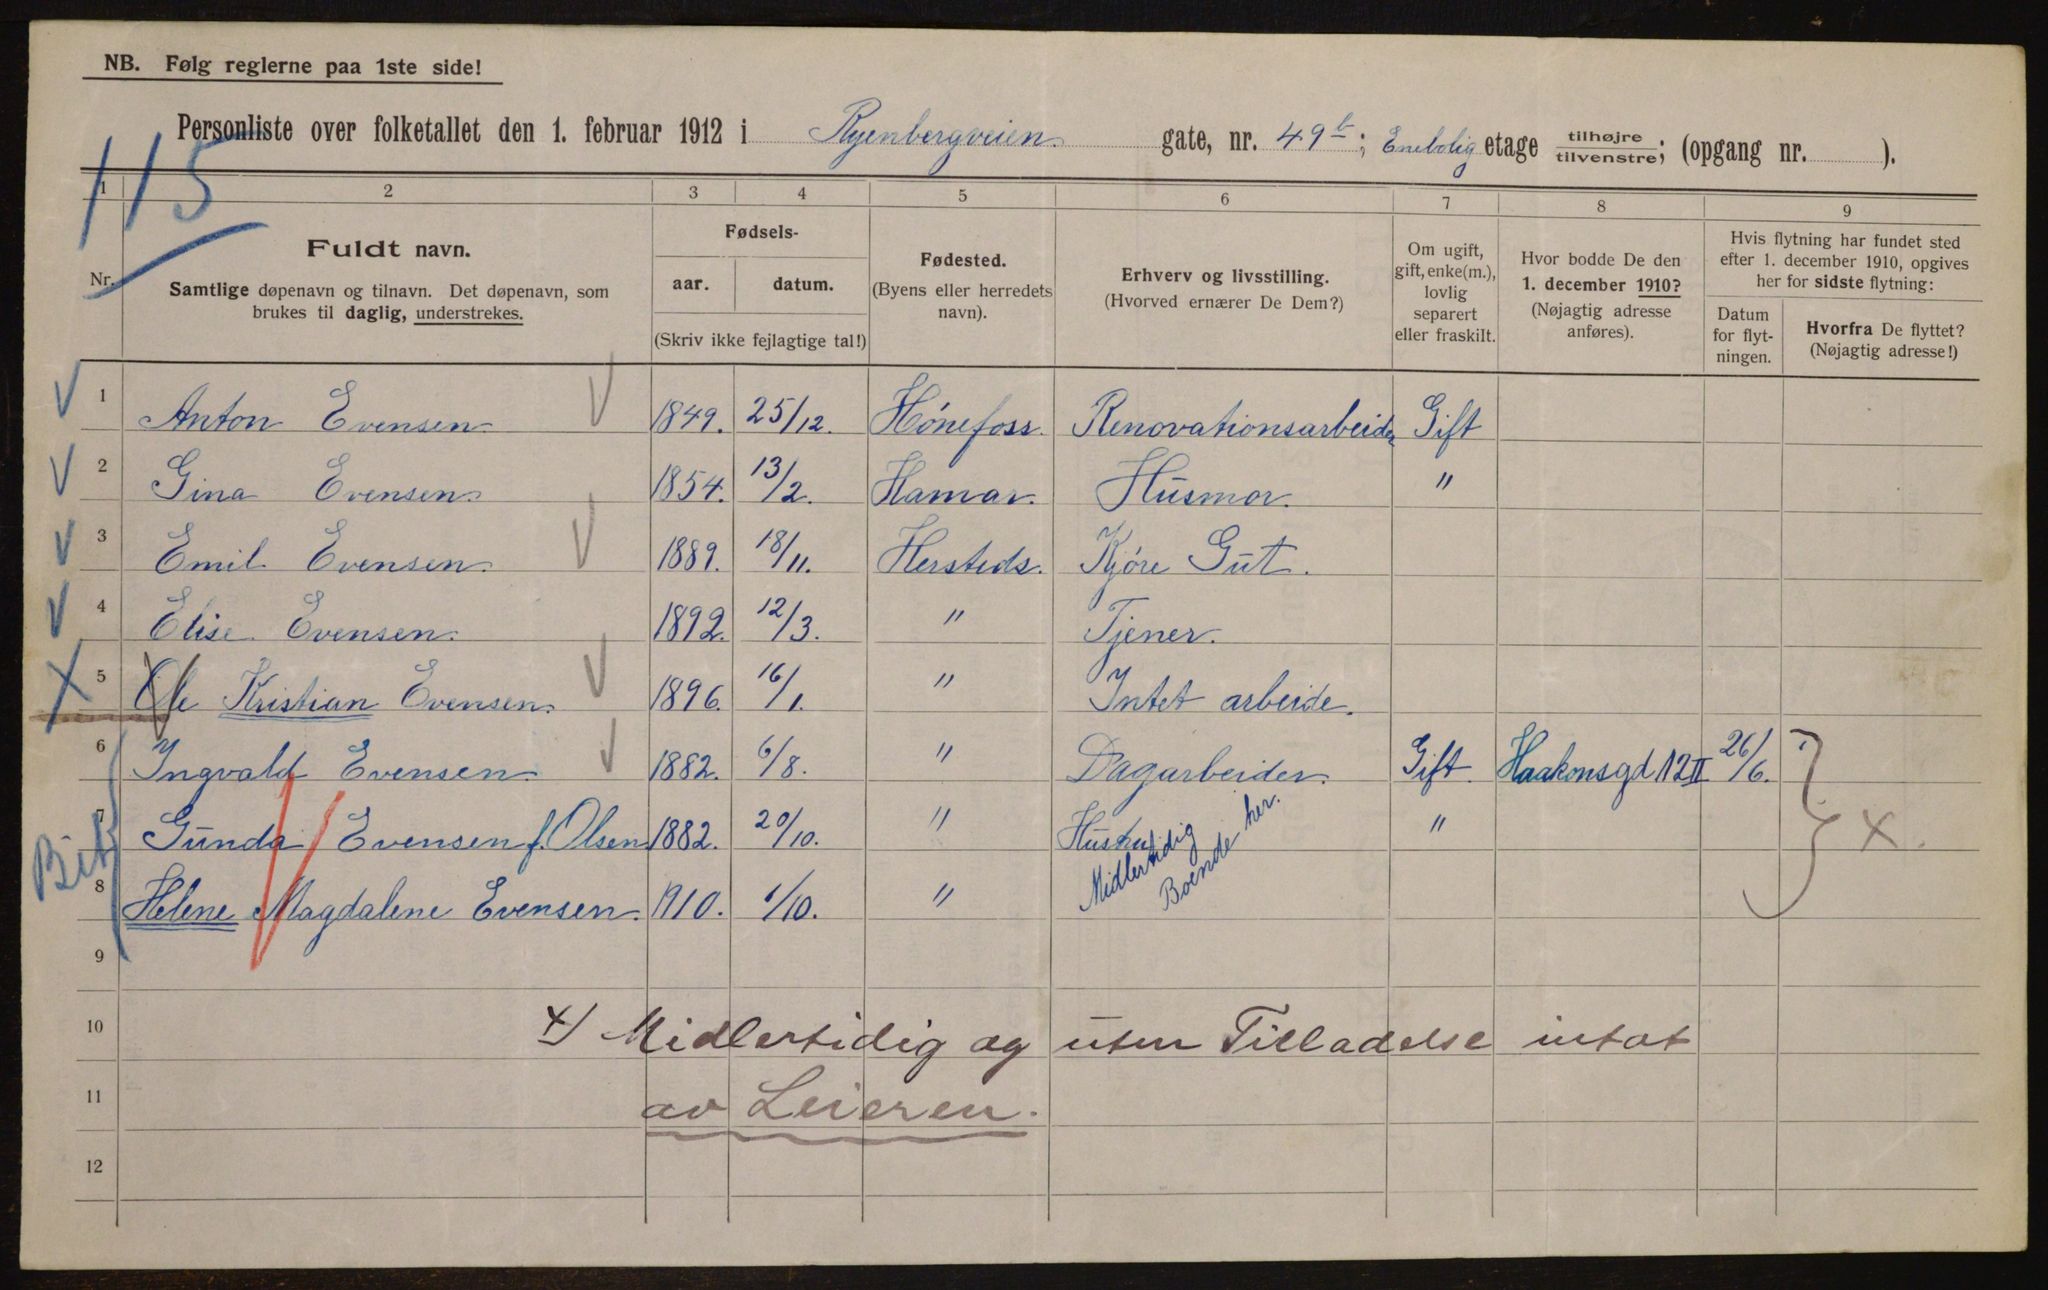 NB. Følg reglerne paa 1ste side!
Personliste over folketallet den 1. februar 1912 i Ryenbergveien gate, nr. 49b; Enebolig etage tilhøjre/tilvenstre; (opgang nr. ).
115
1 2 3 4 5 6 7 8 9
Nr.
Fuldt navn.
Samtlige døpenavn og tilnavn. Det døpenavn, som
brukes til daglig, understrekes.
Fødsels-
aar. datum.
(Skriv ikke fejlagtige tal!)
Fødested.
(Byens eller herredets
navn).
Erhverv og livsstilling.
(Hvorved ernærer De Dem?)
Om ugift,
gift, enke(m.),
lovlig
separert
eller fraskilt.
Hvor bodde De den
1. december 1910?
(Nøjagtig adresse
anføres).
Hvis flytning har fundet sted
efter 1. december 1910, opgives
her for sidste flytning:
Datum
for flyt-
ningen.
Hvorfra De flyttet?
(Nøjagtig adresse!)
1 Anton Evensen 1849. 25/12. Hónefoss. Renovationsarbeider Gift
2 Gina Evensen 1854. 13/2. Hamar. Husmor. "
3 Emil Evensen. 1889. 18/11. Hersteds. Kjóre Gut.
4 Elise Evensen. 1892. 12/3. " Tjener.
5 Ole Kristian Evensen. 1896. 16/1. " Intet arbeide.
6 Ingvald Evensen 1882. 6/8. " Dagarbeider. Gift. Haakonsgd 12 II 26/6.
7 Gunda Evensen f. Olsen 1882. 20/10. " "
X.
Midlertidig
Boende her.
8 Helene Magdalene Evensen. 1910. 1/10. "
9
10 X) Midlertidig og uten Tilladelse intat
11 av Leieren.
12